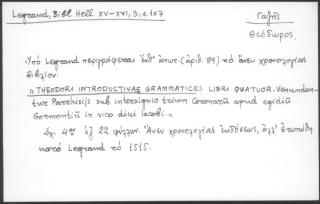 Legrand, Bibl. Hell. XV-XVI, 3, σ. 107
Γαζῆς
Θεόδωρος.
Ὑπὸ Legrand περιγράφεται ἔνθ' (ἀριθ. 89) τὸ ἄνευ χρονολογίας
βιβλίον:
"THEODORI INTRODUCTIVAE GRAMMATICES LIBRI QUATUOR. Venundan-
tur Parrhisijs sub intersignio trium Coronarum apud egidiū
Gormontiū in vico divi Iacobi."
Σχ. 4ον ἐξ 22 φύλλων. Ἄνευ χρονολογίας ἐκδόσεως, ἀλλ' ἐτυπώθη
κατὰ Legrand τὸ 1515.